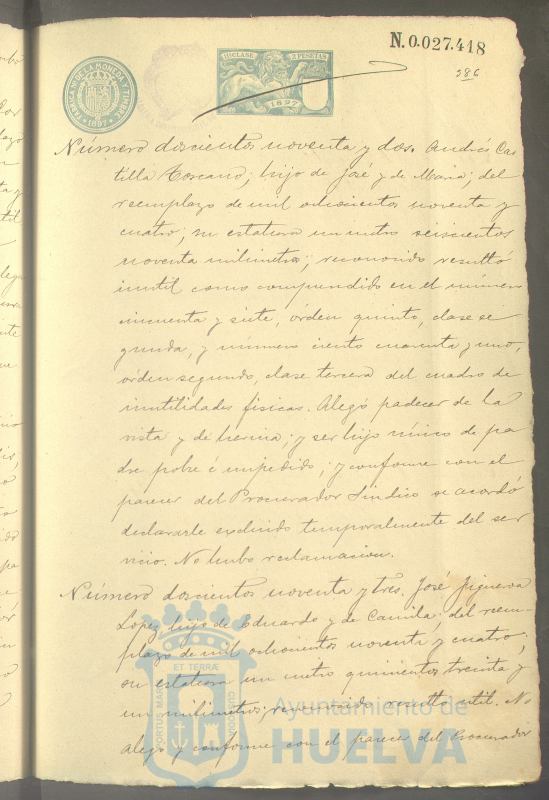 N.0.027.418
586
FABRICA N. DE LA MONEDA Y TIMBRE
1897
11ª CLASE 2 PESETAS
1897
Número doscientos noventa y dos. Andrés Cas
tilla Toscano; hijo de José y de Maria; del
reemplazo de mil ochocientos noventa y
cuatro; su estatura un metro seiscientos
noventa milimetros; reconocido resultó
inutil como comprendido en el número
cincuenta y siete, órden quinto, clase se
gunda, y número ciento cuarenta y uno,
orden segundo, clase tercera del cuadro de
inutilidades fisicas. Alegó padecer de la
vista y de hernia; y ser hijo único de pa
dre pobre é impedido; y conforme con el
parecer del Procurador Síndico se acordó
declararle excluido temporalmente del ser
vicio. No hubo reclamacion.
Número doscientos noventa y tres. José Figueroa
Lopez hijo de Eduardo y de Camila, del reem-
plazo de mil ochocientos noventa y cuatro;
su estatura un metro quinientos treinta y
un milimetros; reconocido resultó util. No
alegó y conforme con el parecer del Procurador
ET TERRÆ
PORTUS MARIS
CUSTODIA
Ayuntamiento de
HUELVA